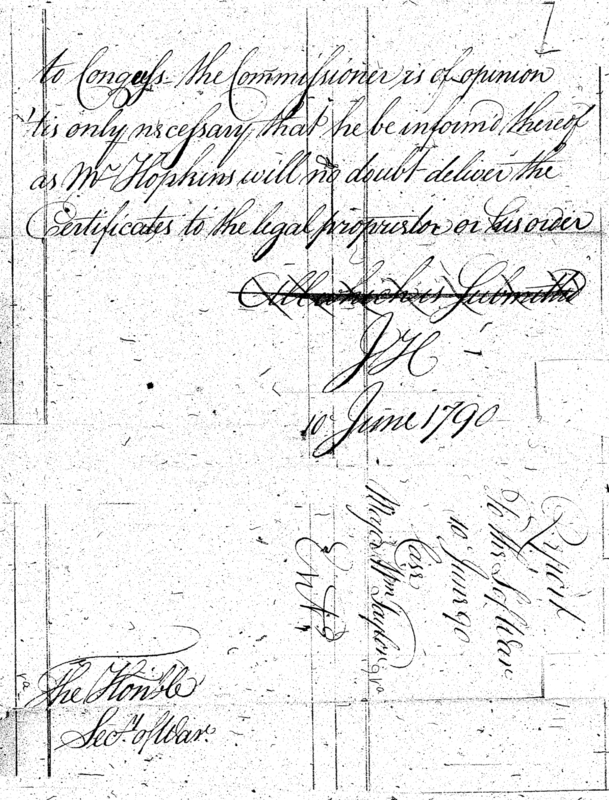 to Congress the Commissioner is of opinion
'tis only necessary that he be informd thereof
as Mr Hopkins will no doubt deliver the
Certificates to the legal proprietor or his order
All which is Submitted
JH
10 June 1790
Report
To the Sec War
10 June 90
Case
Major Wm Taylor
Entd
The Honble
Secy of War.